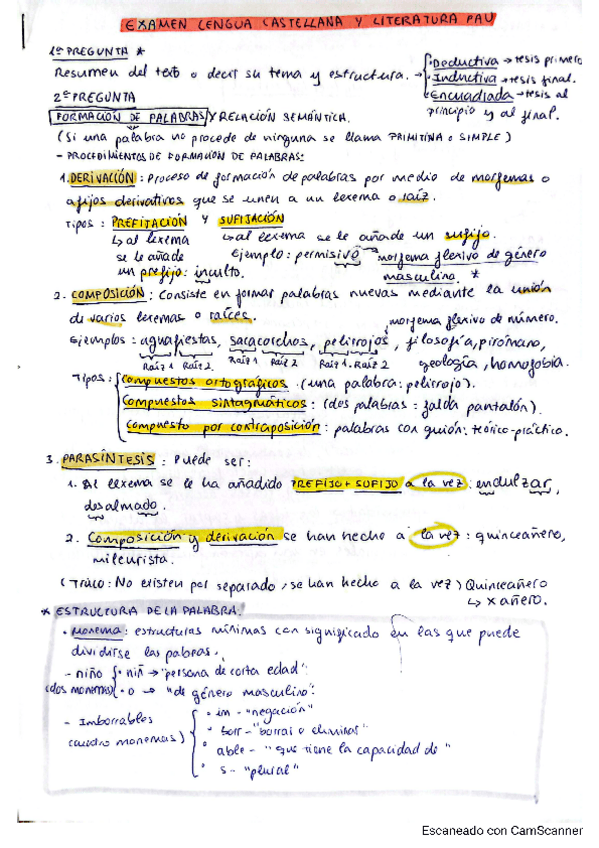 EXAMEN LENGUA CASTELLANA Y LITERATURA PAU
1ª PREGUNTA *
Resumen del texto o decir su tema y estructura. → Deductiva → tesis primero
Inductiva → tesis final.
Encuadrada → tesis al principio y al final.
2ª PREGUNTA
FORMACIÓN DE PALABRAS Y RELACIÓN SEMÁNTICA.
(Si una palabra no procede de ninguna se llama PRIMITIVA o SIMPLE)
- PROCEDIMIENTOS DE FORMACIÓN DE PALABRAS:
1. DERIVACIÓN: Proceso de formación de palabras por medio de morfemas o
afijos derivativos que se unen a un lexema o raíz.
Tipos: PREFIJACIÓN Y SUFIJACIÓN
↳ al lexema se le añade un prefijo: inculto.
↳ al lexema se le añade un sufijo.
Ejemplo: permisivo → morfema flexivo de género masculino. *
2. COMPOSICIÓN: Consiste en formar palabras nuevas mediante la unión
de varios lexemas o raíces.
morfema flexivo de número.
Ejemplos: aguafiestas, sacacorchos, pelirrojos, filosofía, pirómano,
Raíz 1 Raíz 2 Raíz 1 Raíz 2 Raíz 1 Raíz 2 geología, homofobia.
Tipos: Compuestos ortográficos (una palabra: pelirrojo).
Compuestos sintagmáticos: (dos palabras: falda pantalón).
Compuesto por contraposición: palabras con guión: teórico-práctico.
3. PARASÍNTESIS: Puede ser:
1. Al lexema se le ha añadido PREFIJO + SUFIJO a la vez: endulzar,
desalmado.
2. Composición y derivación se han hecho a la vez: quinceañero,
mileurista.
(Truco: No existen por separado, se han hecho a la vez) Quinceañero
↳ x añero.
* ESTRUCTURA DE LA PALABRA.
• Monema: estructuras mínimas con significado en las que puede
dividirse las palbras.
- niño • niñ → "persona de corta edad".
(dos monemas) • o → "de género masculino".
- Imborrables
(cuatro monemas)
• im - "negación"
• borr - "borrar o eliminar"
• able - "que tiene la capacidad de"
• s - "plural"
Escaneado con CamScanner